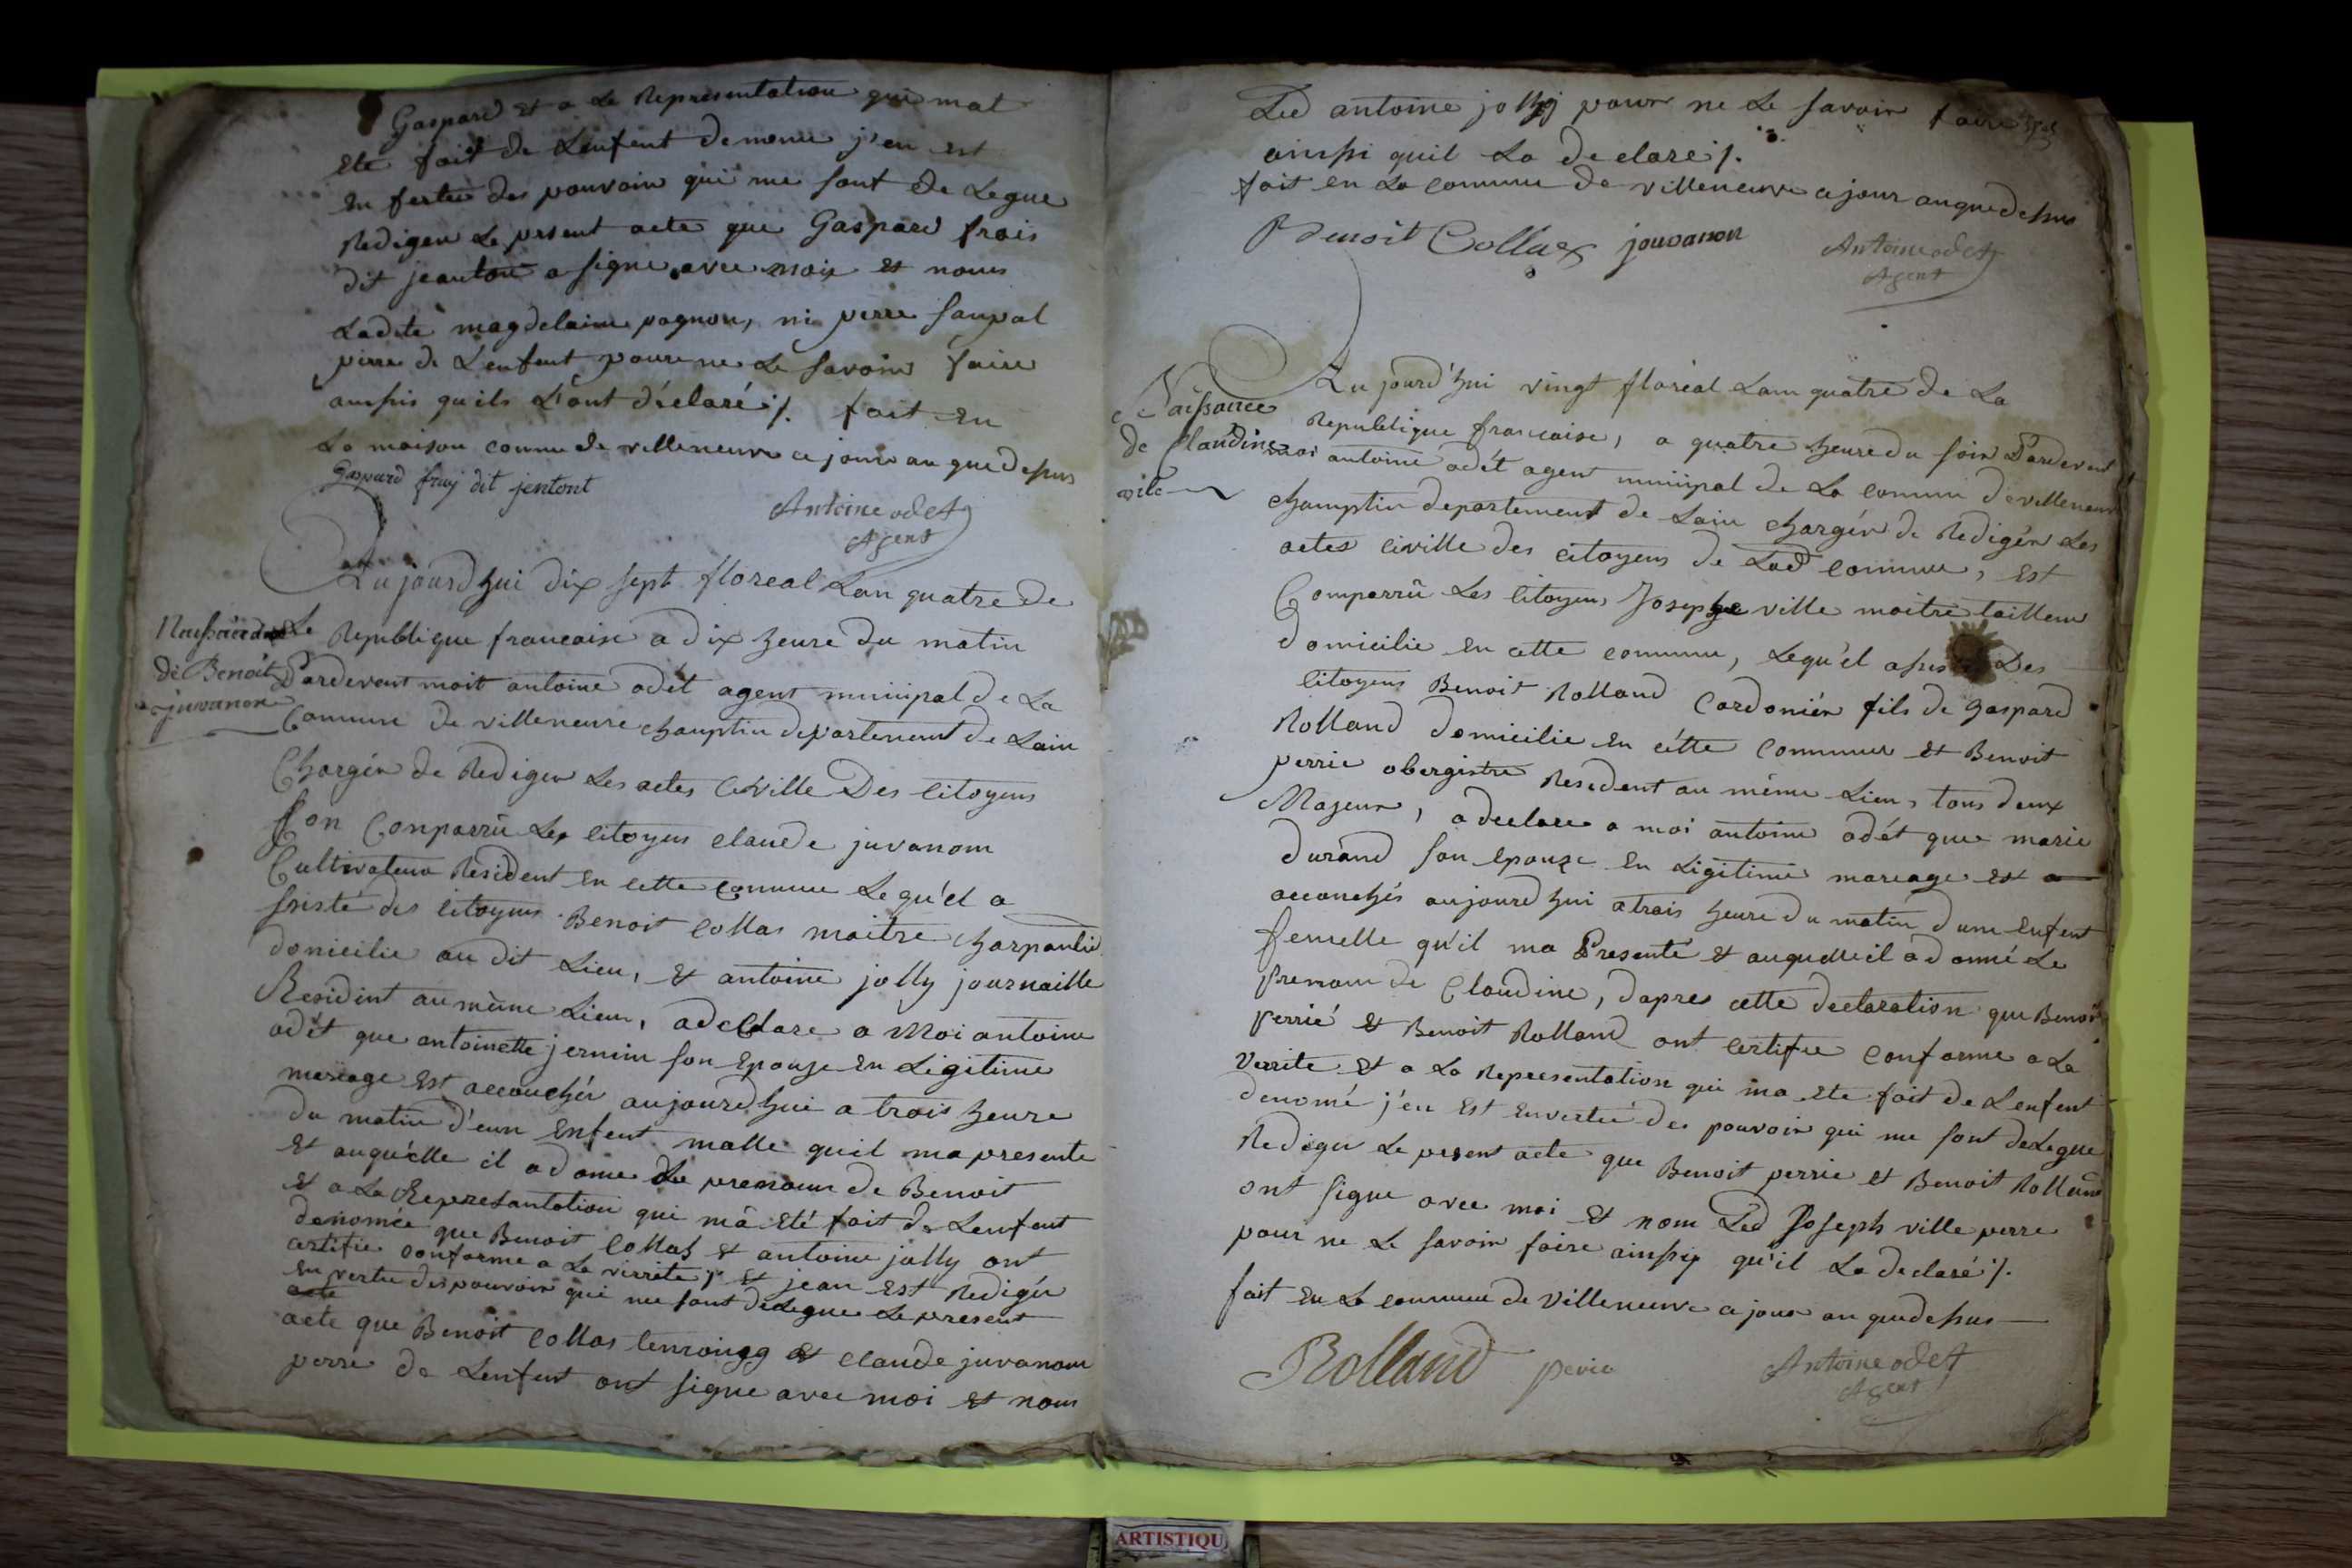 Gaspard et a La Representation qui mat
ete fait de Lenfent denome j'en est
En fertue des pouvoir qui me sont de Legue
Rediger Le present acte que Gaspard frais
dit jeantont a signe avec moix et nom
Ladite magdelaine pagnon, ni perre
perre de Lenfent pour ne Le savoir faire
ainssis quils L'ont déclaré ./. fait En
La maison comune de villeneuve ce jour an que dessus
Gaspard fray dit jentont
Antoine odet
Agent
Au jourd'hui dix sept floreal Lan quatre de
La Republique francaise a dix heure du matin
Pardevent moit antoine adét agent municipal de La
Commune de villeneuve champtin departement de Lain
Chargér de Rediger Les actes Civille Des Citoyens
son Comparrû Les citoyens claude juvanom
Cultivateur Resident en cette commune Le qu'el a
ssisté des citoyens Benoit collas maitre charpantié
domicilie au dit Lieu, et antoine jolly journaille
Resident au même Lieu, a declare a Moi antoine
adét que antoinette jernim son epouze en Ligitime
mareage Est accouchér aujourdhui a trois heure
du matin d'eun Enfent malle quil ma presente
Et auquélle il a done Le prenom de Benoit
et a La Representation qui mâ eté fait de Lenfent
denomée que Benoit Collas et antoine jolly ont
certifie conforme a La verrite ./. et jean est Rediger
en vertue des pouvoir qui me sont delegue Le present
acte
acte que Benoit collas et claude juvanom
perre de Lenfent ont signe avec moi et nom
Naissance
de Benoit
juvanon
Led antoine jolly pour ne Le savoir faire
ainssi quil La declaré ./.
fait en La comune de villeneuve ce jour an que dessus
Benoit Collas jouvanon
Antoine odet
Agent
Naissance
de Claudine
vile
Au jourd'hui vingt floréal Lan quatre de La
Republique francaise, a quatre heure du soir Pardevent
moi antoine adét agent municipal de La comune de villeneuve
champtin departement de Lain chargér de Redigér Les
actes civille des citoyens de Lad commune, est
Comparrû Les citoyens Joseph ville maitre tailleur
domicilie en cette commune, Lequ'el assisté Des
citoyens Benoit Rolland Cardoniér fils de gaspard
Rolland domicilie en cétte commune et Benoit
perrie obergistre Resident au même Lieu, tous deux
Majeur, a declare a moi antoine adét que marie
durand son epouze en Ligitime mareage est a
accouchés aujourdhui a trois heure du matin dune Enfent
femelle qu'il ma Presenté et auquelle il a donné Le
prenom de Claudine, dapres cette declaration que Benoit
perrié et Benoit Rolland ont certifie conforme a La
Verrite et a La Representation qui ma ete fait de Lenfent
denomé j'en est en vertue des pouvoir qui me sont deLegue
Rediger Le present acte que Benoit perrie et Benoit Rolland
ont signe avec moi et nom Led Joseph ville perre
pour ne Le savoir faire ainssy qu'il La declaré ./.
fait En La commune de villeneuve ce jour an que dessus
Rolland perie
Antoine odet
Agent
ARTISTIQU